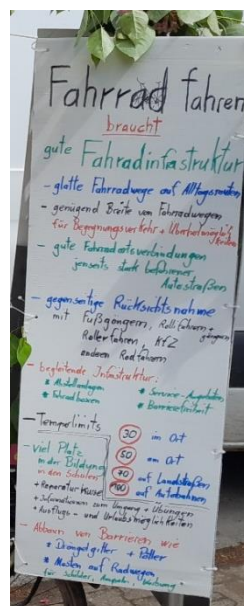 Fahrrad fahren
braucht
gute Fahradinfrastruktur
- glatte Fahrradwege auf Alltagsrouten
- genügend Breite von Fahrradwegen
für Begegnungsverkehr + Überholmöglichkeiten
- gute Fahrradortsverbindungen
jenseits stark befahrener
Autostraßen
- gegenseitige Rücksichtsnahme
mit Fußgängern, Rollifahrern +
Rollerfahrern, KFZ
anderen Radfahrern
- begleitende Infrastruktur:
* Abstellanlagen
* Service-Angeboten
* Fahrradboxen
* Barrierefreiheit
- Temperlimits
30 im Ort
50 am Ort
70 auf Landstraßen
100 auf Autobahnen
- viel Platz
in der Bildung
in den Schulen
+ Reparatur Kurse
+ Informationen zum Umgang + Übungen
+ Ausflugs- und Urlaubsmöglichkeiten
- Abbau von Barrieren wie
* Drängelgitter + Poller
* Masten auf Radwegen
für Schilder, Ampeln,